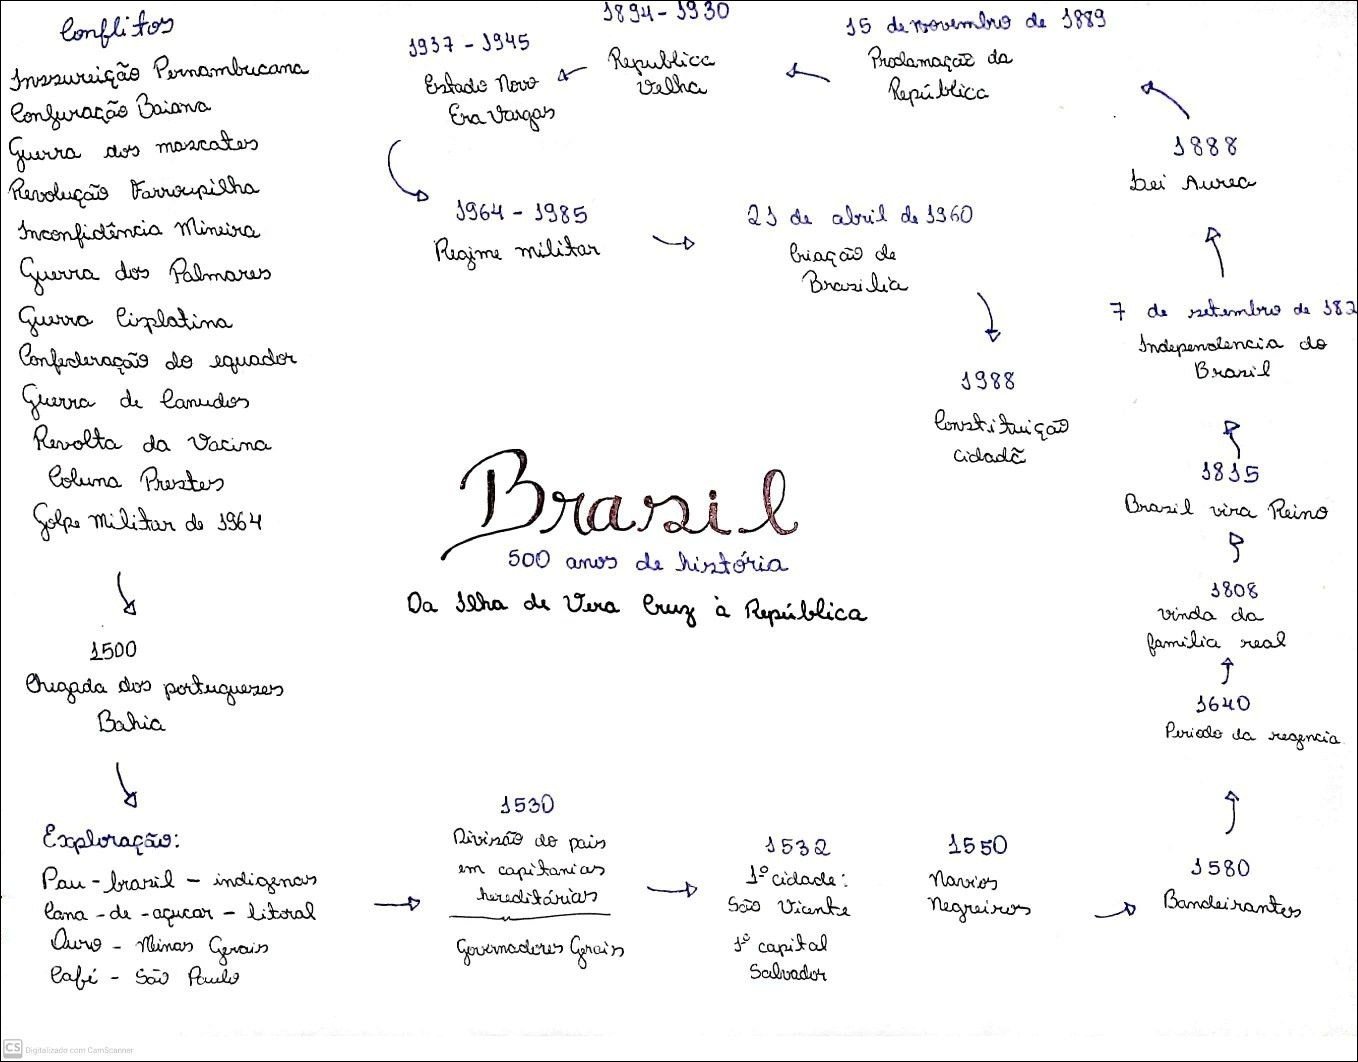 Conflitos
Inssureição Pernambucana
Conjuração Baiana
Guerra dos mascates
Revolução Farroupilha
Inconfidência Mineira
Guerra dos Palmares
Guerra Cisplatina
Confederação do equador
Guerra de Canudos
Revolta da Vacina
Coluna Prestes
Golpe Militar de 1964
1500
Chegada dos portugueses
Bahia
Exploração:
Pau-brasil - indigenas
Cana-de-açucar - litoral
Ouro - Minas Gerais
Café - São Paulo
1530
Divisão do pais
em capitanias
hereditárias
Governadores Gerais
1532
1º cidade:
São Vicente
1º capital
Salvador
1550
Navios
Negreiros
1580
Bandeirantes
1640
Periodo da regencia
1808
vinda da
familia real
1815
Brasil vira Reino
7 de setembro de 182
Independencia do
Brasil
1888
Lei Aurea
15 de novembro de 1889
Proclamação da
República
1894-1930
Republica
Velha
1937 - 1945
Estado Novo
Era Vargas
1964 - 1985
Regime militar
21 de abril de 1960
Criação de
Brasilia
1988
Constituição
cidadã
Brasil
500 anos de história
Da Ilha de Vera Cruz à República
CS Digitalizado com CamScanner